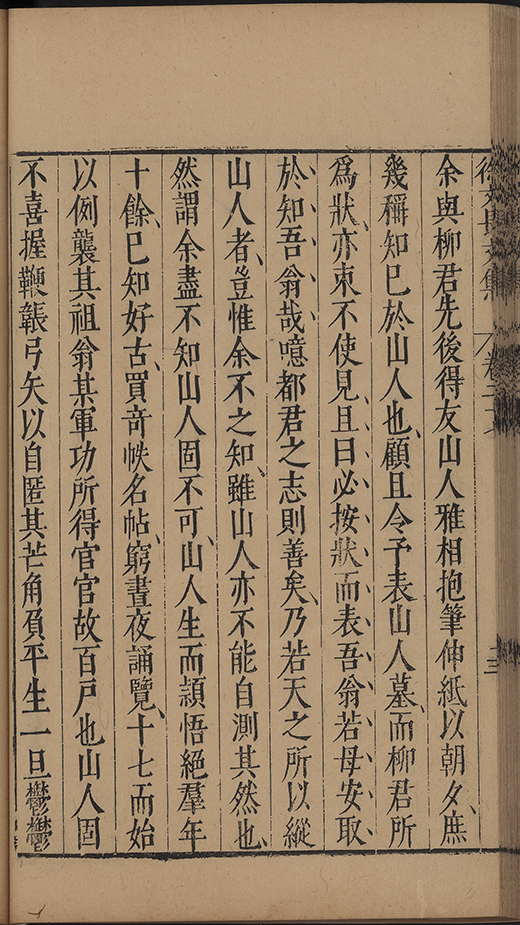 余與柳君先後得友山人雅相抱筆伸紙以朝夕、庶
幾稱知己於山人也、顧且令予表山人墓、而柳君所
爲狀、亦束不使見、且曰必按狀而表吾翁若母安取
於知吾翁哉噫都君之志則善矣、乃若天之所以縱
山人者、豈惟余不之知、雖山人亦不能自測其然也、
然謂余盡不知山人固不可、山人生而頴悟絕羣年
十餘、已知好古、買竒帙名帖、窮晝夜誦覽、十七而始
以例襲其祖翁某軍功所得官官故百戶也山人固
不喜握鞭韔弓矢以自匿其芒角負平生一旦鬱鬱